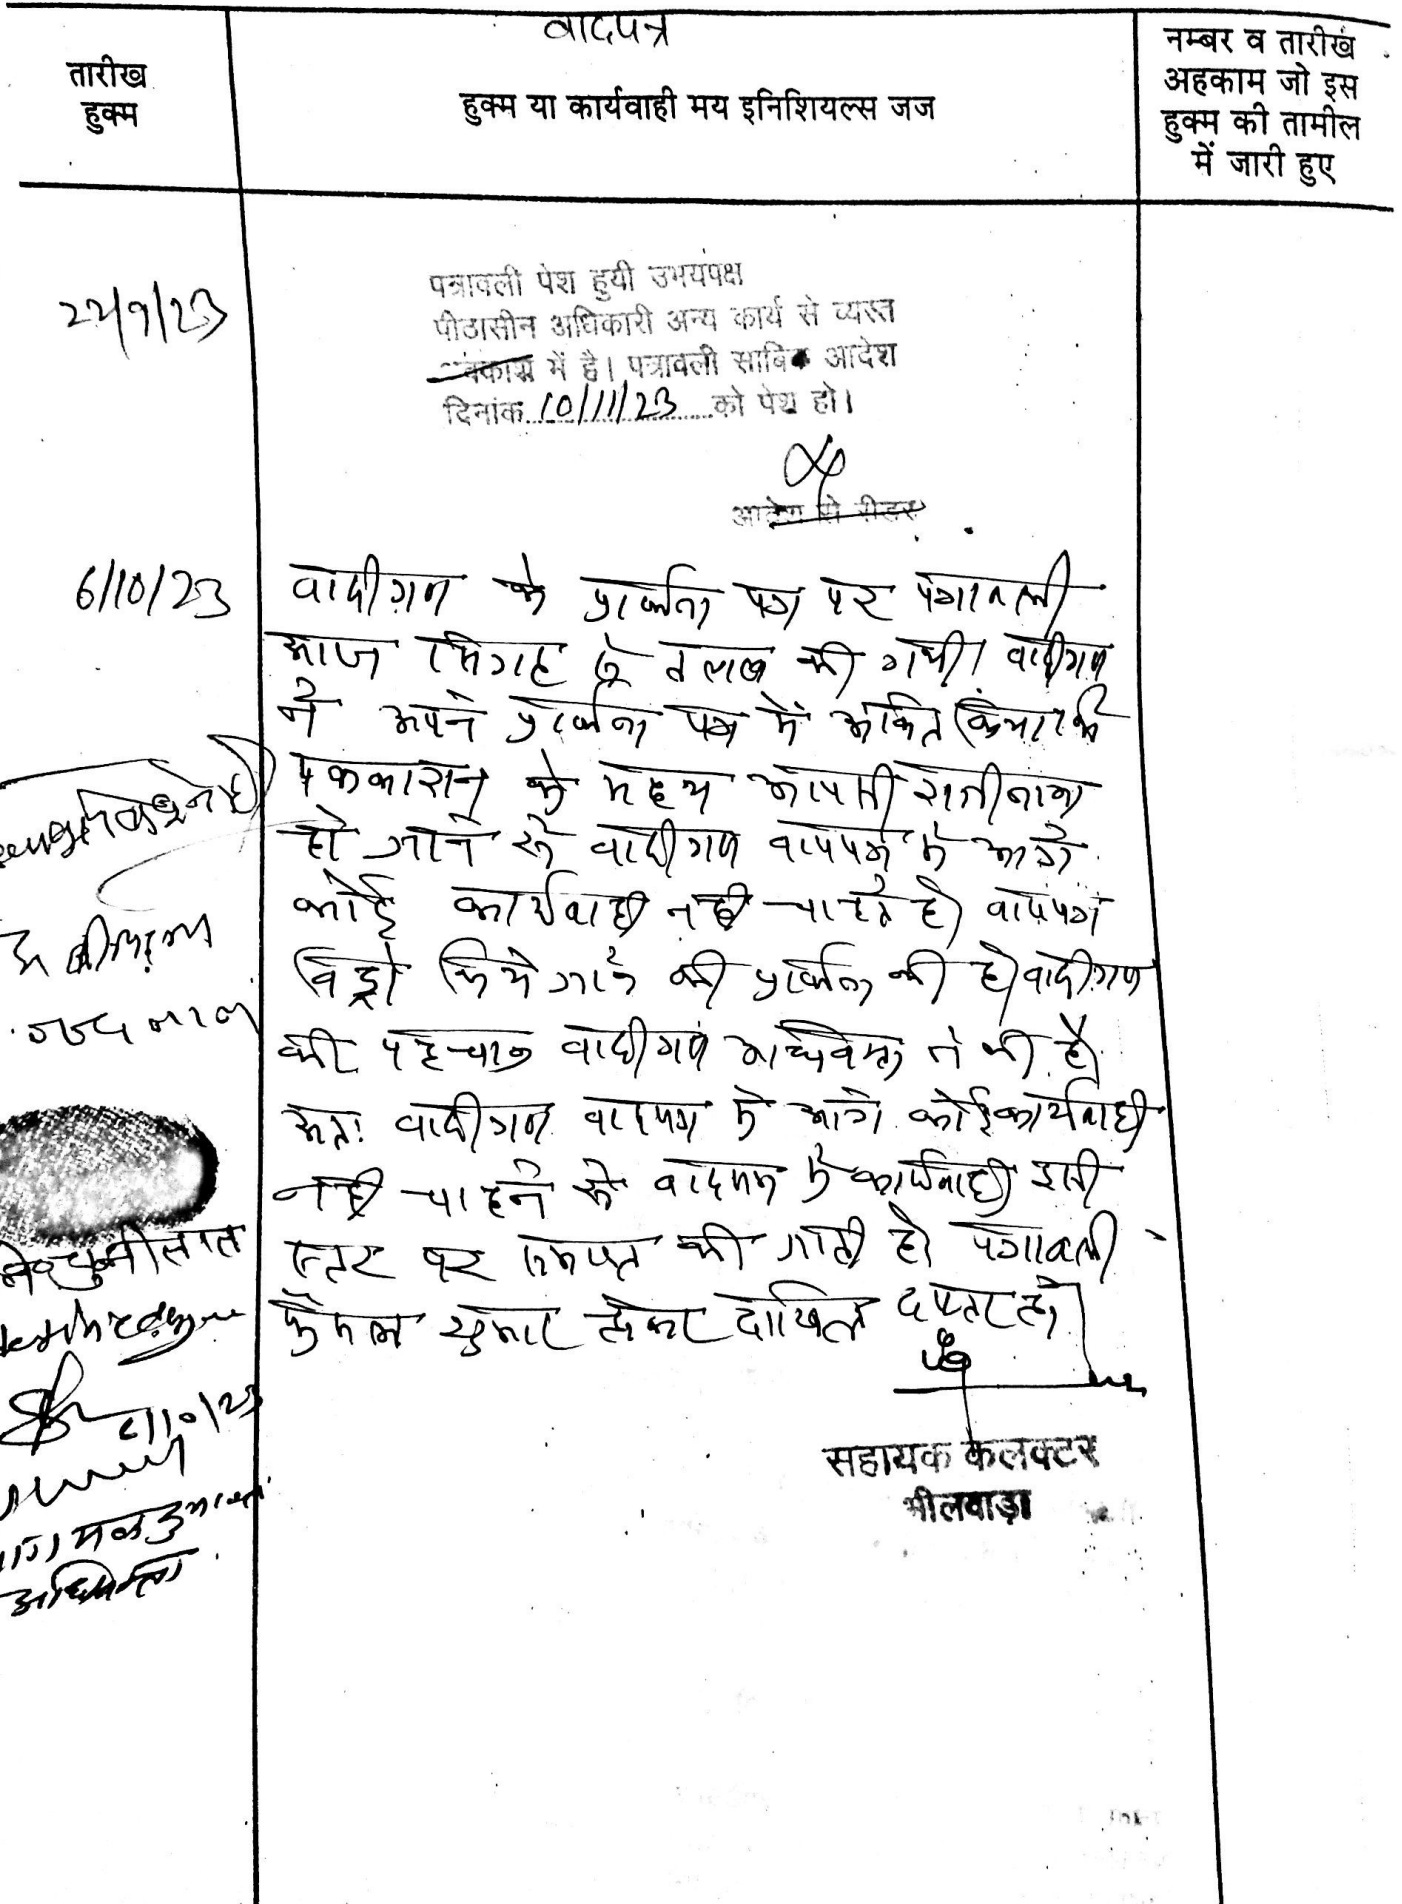 वादपत्र
तारीख
हुक्म
हुक्म या कार्यवाही मय इनिशियल्स जज
नम्बर व तारीख
अहकाम जो इस
हुक्म की तामील
में जारी हुए
22/9/23
पत्रावली पेश हुयी उभयपक्ष
पीठासीन अधिकारी अन्य कार्य से व्यस्त
में है। पत्रावली साबिक आदेश
दिनांक 10/11/23 को पेश हो।
आदेश से रीडर
6/10/23
वादीगण के प्रार्थना पत्र पर पत्रावली
आज तलब की गयी। वादीगण
ने अपने प्रार्थना पत्र में अंकित किया कि
पक्षकारान् के मध्य आपसी राजीनामा
हो जाने से वादीगण वादपत्र में आगे
कोई कार्यवाही नही चाहते है। वादपत्र
विड्रो किये जाने की प्रार्थना की है। वादीगण
की पहचान वादीगण अधिवक्ता ने की है।
अतः वादीगण वादपत्र में आगे कोई कार्यवाही
नही चाहने से वादपत्र में कार्यवाही इसी
स्तर पर समाप्त की जाती है। पत्रावली
फैसल शुमार होकर दाखिल दफ्तर हो।
सहायक कलक्टर
भीलवाड़ा
6/10/23
अधिवक्ता